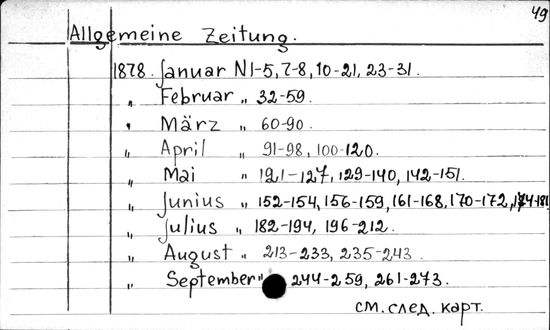 49
Allgemeine Zeitung.
1878. Januar N 1-5, 7-8, 10-21, 23-31.
" Februar " 32-59.
" März " 60-90.
" April " 91-98, 100-120.
" Mai " 121-127, 129-140, 142-151.
" Junius " 152-154, 156-159, 161-168, 170-172, 174-181
" Julius " 182-194, 196-212.
" August " 213-233, 235-243
" September " 244-259, 261-273.
см. след. карт.